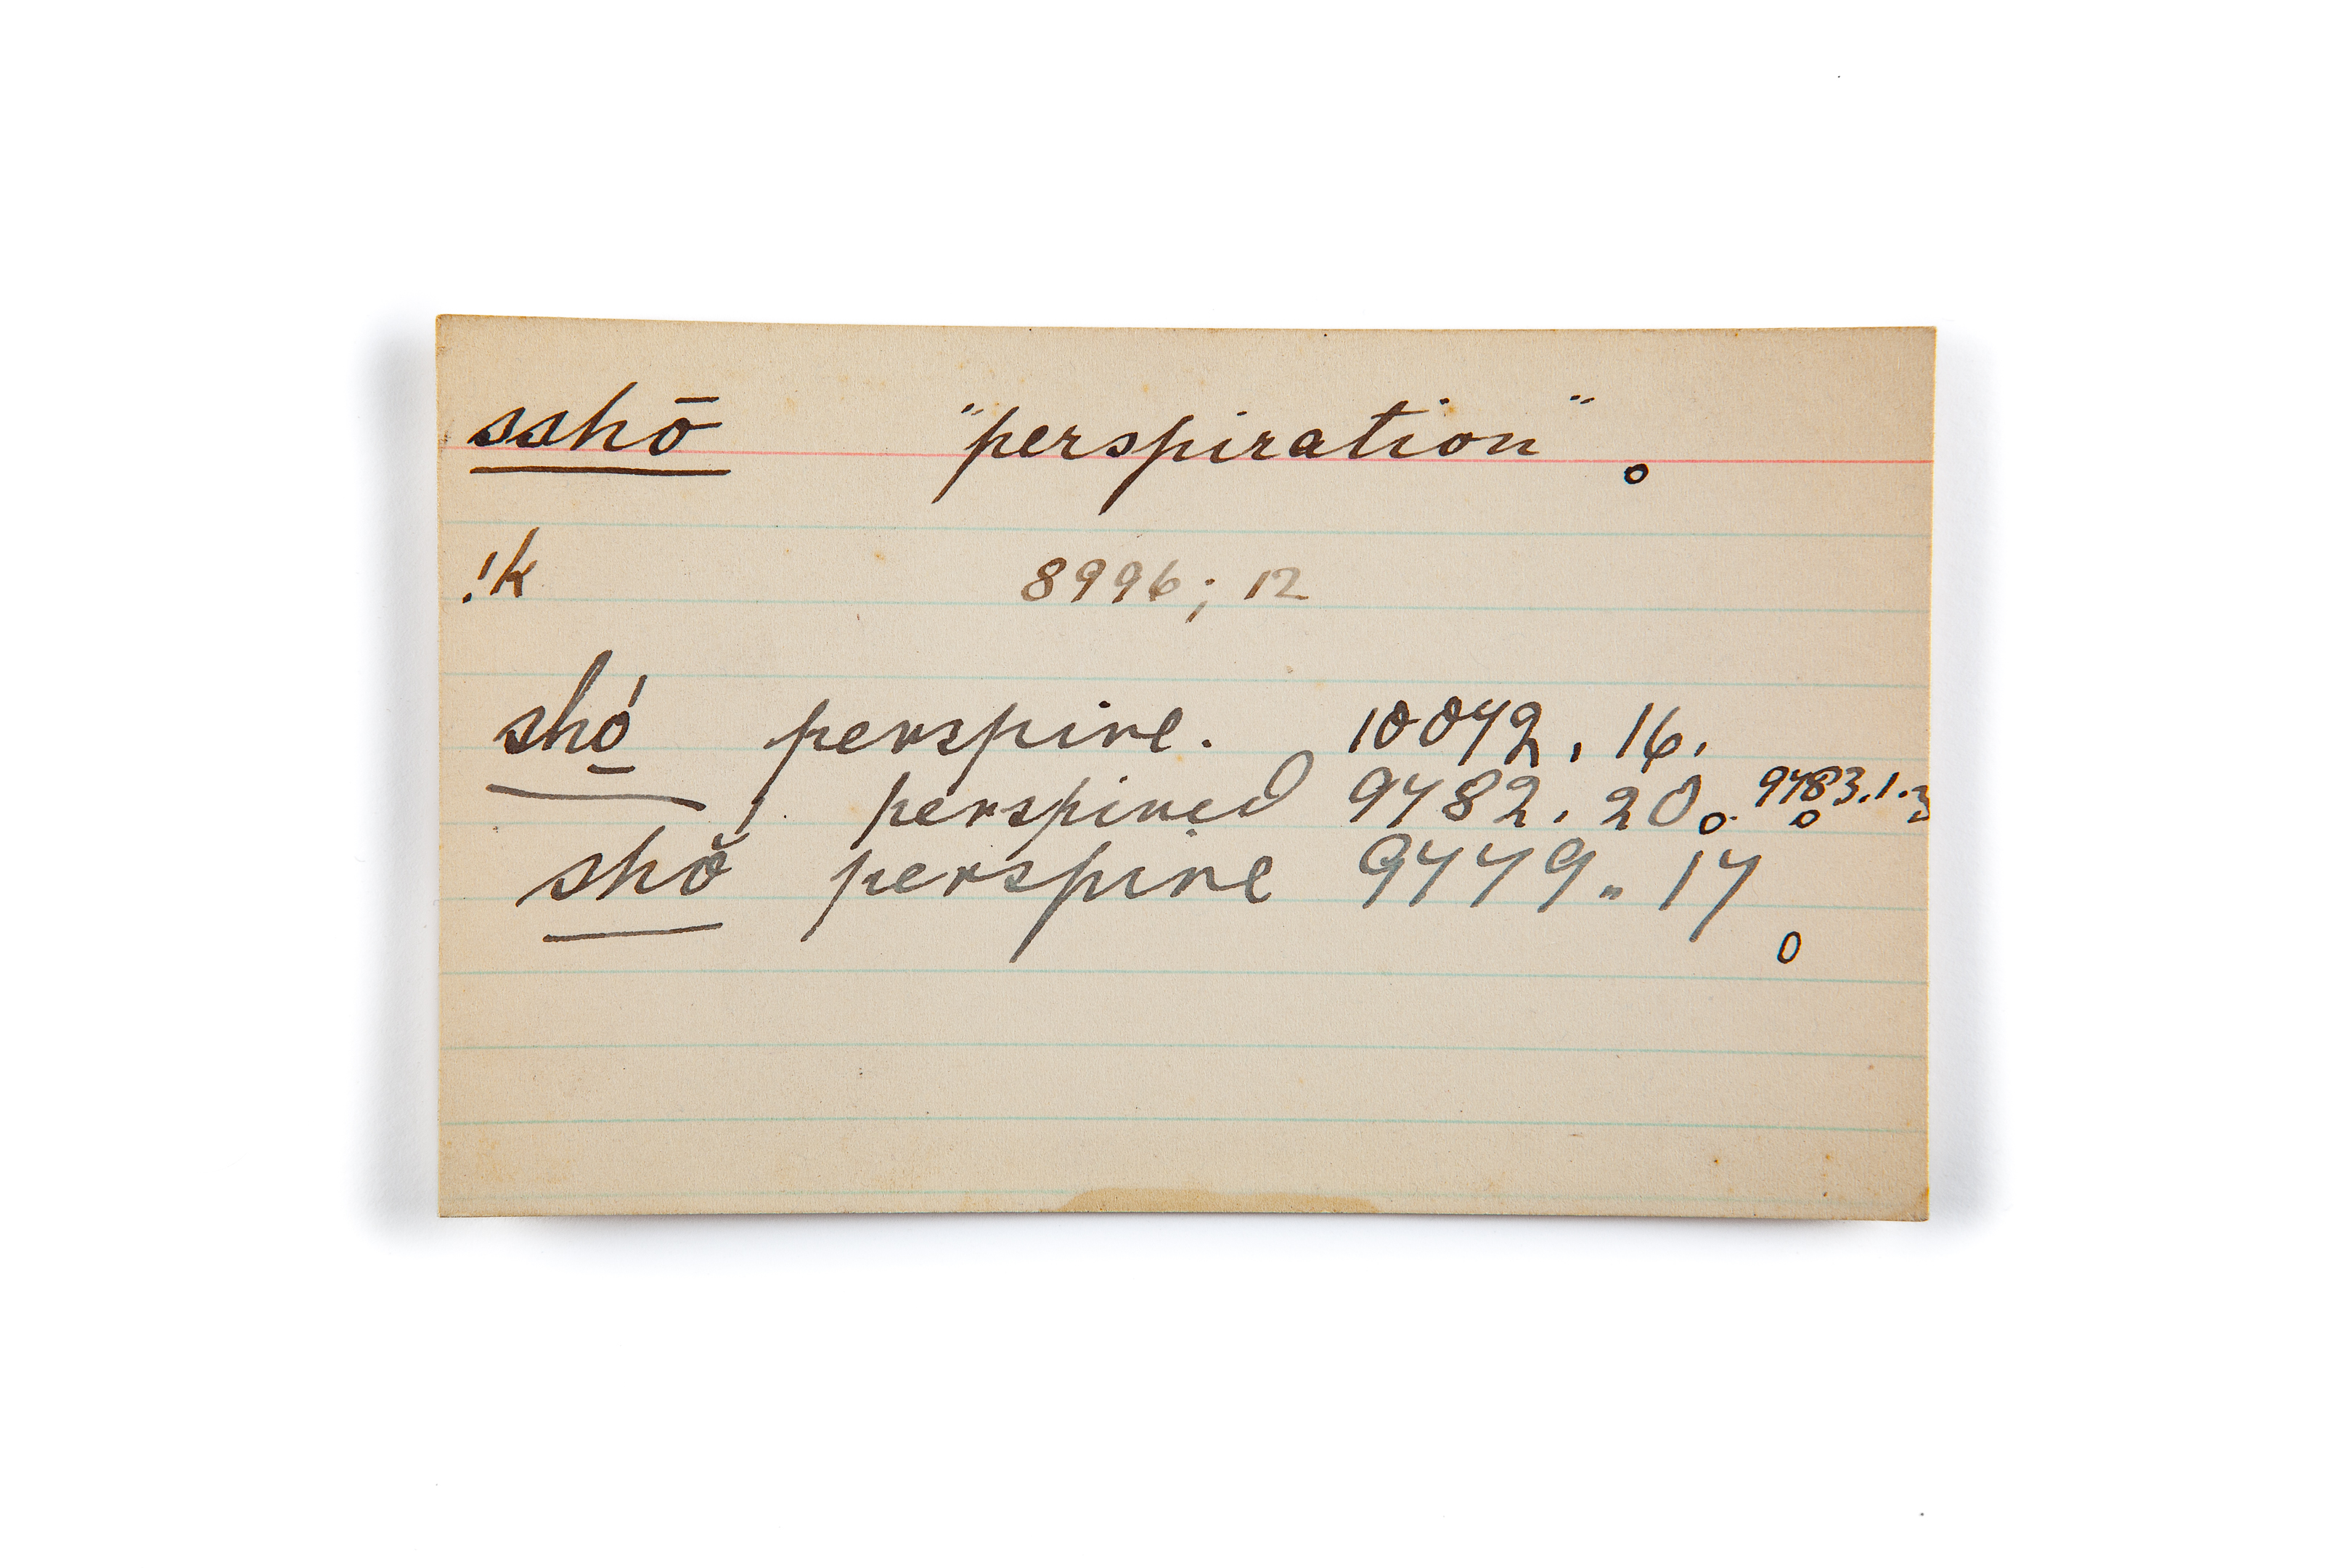 sshō "perspiration"。
!k 8996; 12
shó̱ perspire. 10042. 16.
perspired 9482. 20。 9483.1.3
shŏ́ perspire 9449. 14。